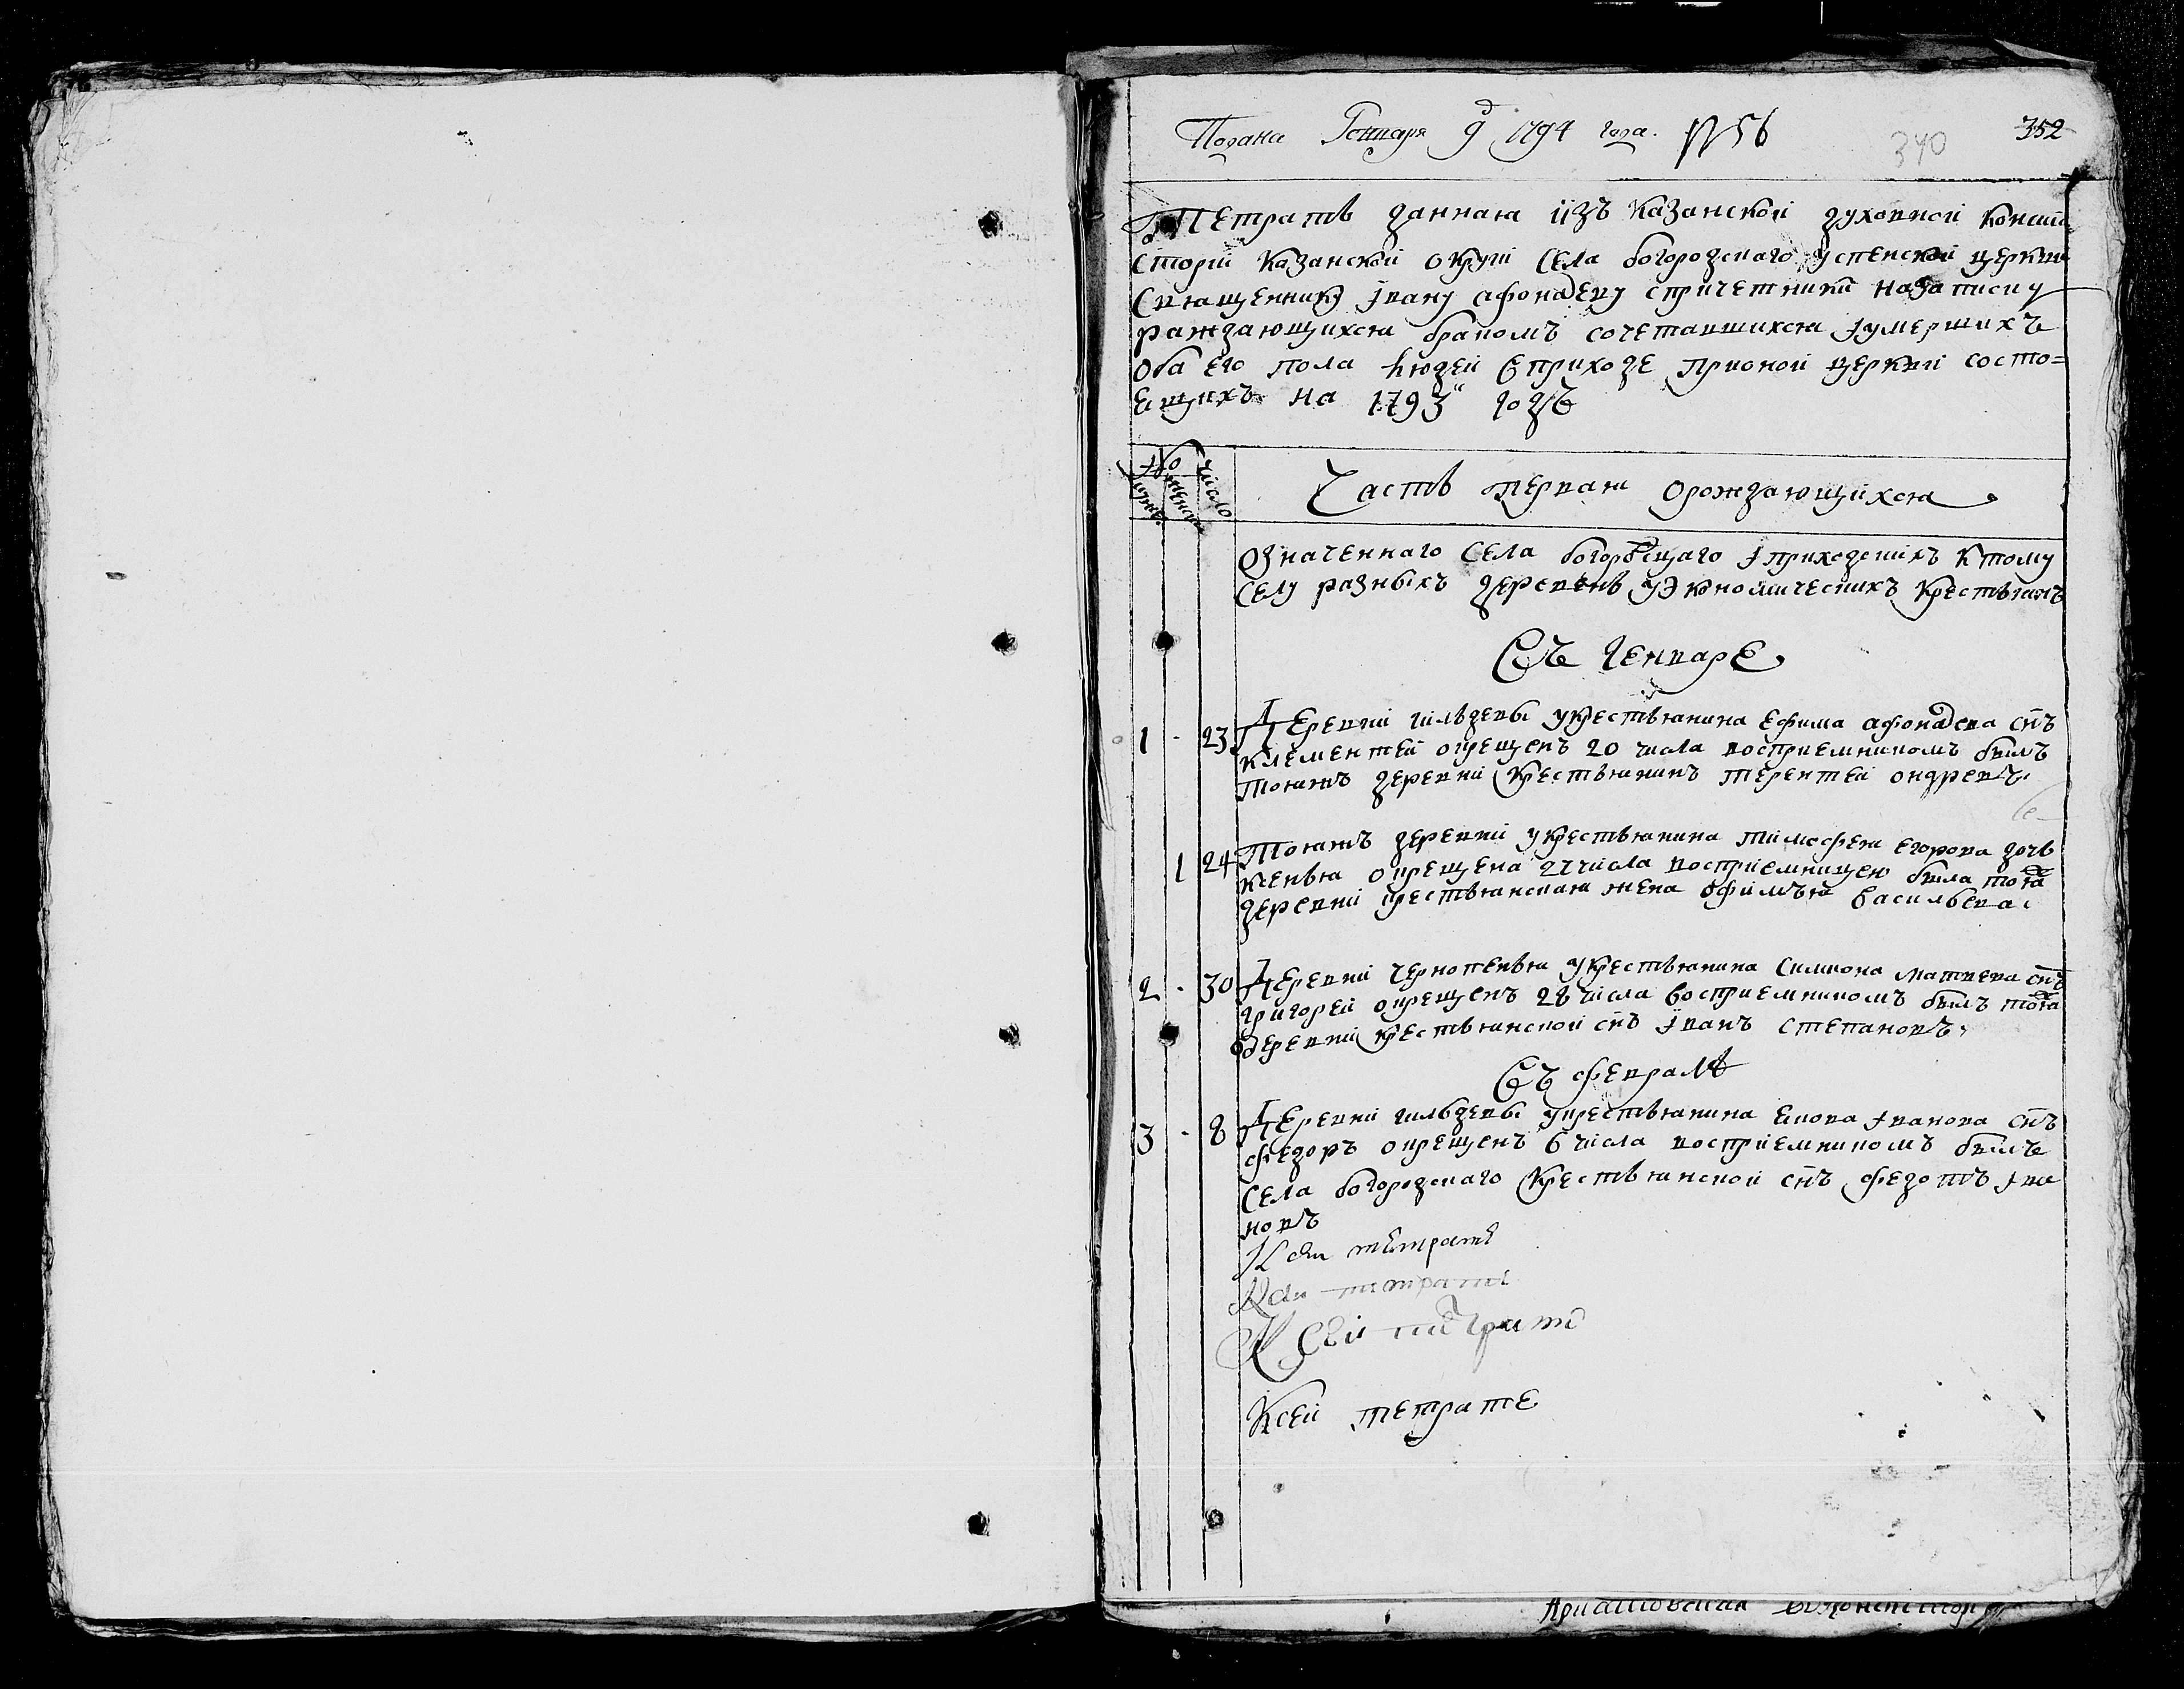 Подана Генваря 9д 1794 года. № 56
340 352
Тетрать данная изъ казанской духовной конси
сторiи казанской округи села богородскаго успенской церкви
священнику Iвану афонасеву спричетники назаписку
раждающихся бракомъ сочетавшихся iумершихъ
оба его пола людей вприходеприоной церкви состо=
ещихъ на 1793й годъ
число
Часть первая орождающихся
означеннаго села богородскаго iприходскихъ ктому
селу разныхъ деревень уэкономическихъ крестьянъ
въ генваре
1 - 23 Деревни укрестьянина ефима афонасева снъ
климентей окрещенъ 20 числа восприемникомъ былъ
тояжъ деревни крестьянинъ терентей ондревъ
1 24 тояжъ деревни укрестьянина тимофея егорова дочь
ксенья окрещена 22 числа восприемницею была тояж
деревни крестьянская жена офимъя васильева
2 - 30 Деревни укрестьянина симиона матвева снъ
григорей окрещенъ 28 числа восприемникомъ былъ тояж
деревни крестьянской снъ iванъ степановъ
въ февралѣ
3 - 8 Деревни укрестьянина iванова снъ
федоръ окрещенъ 6 числа восприемникомъ былъ
села богородскаго крестьянской снъ федотъ iва
новъ
К сей тетрате
К сей тетрате
К сей тетрате
Ксей тетрате